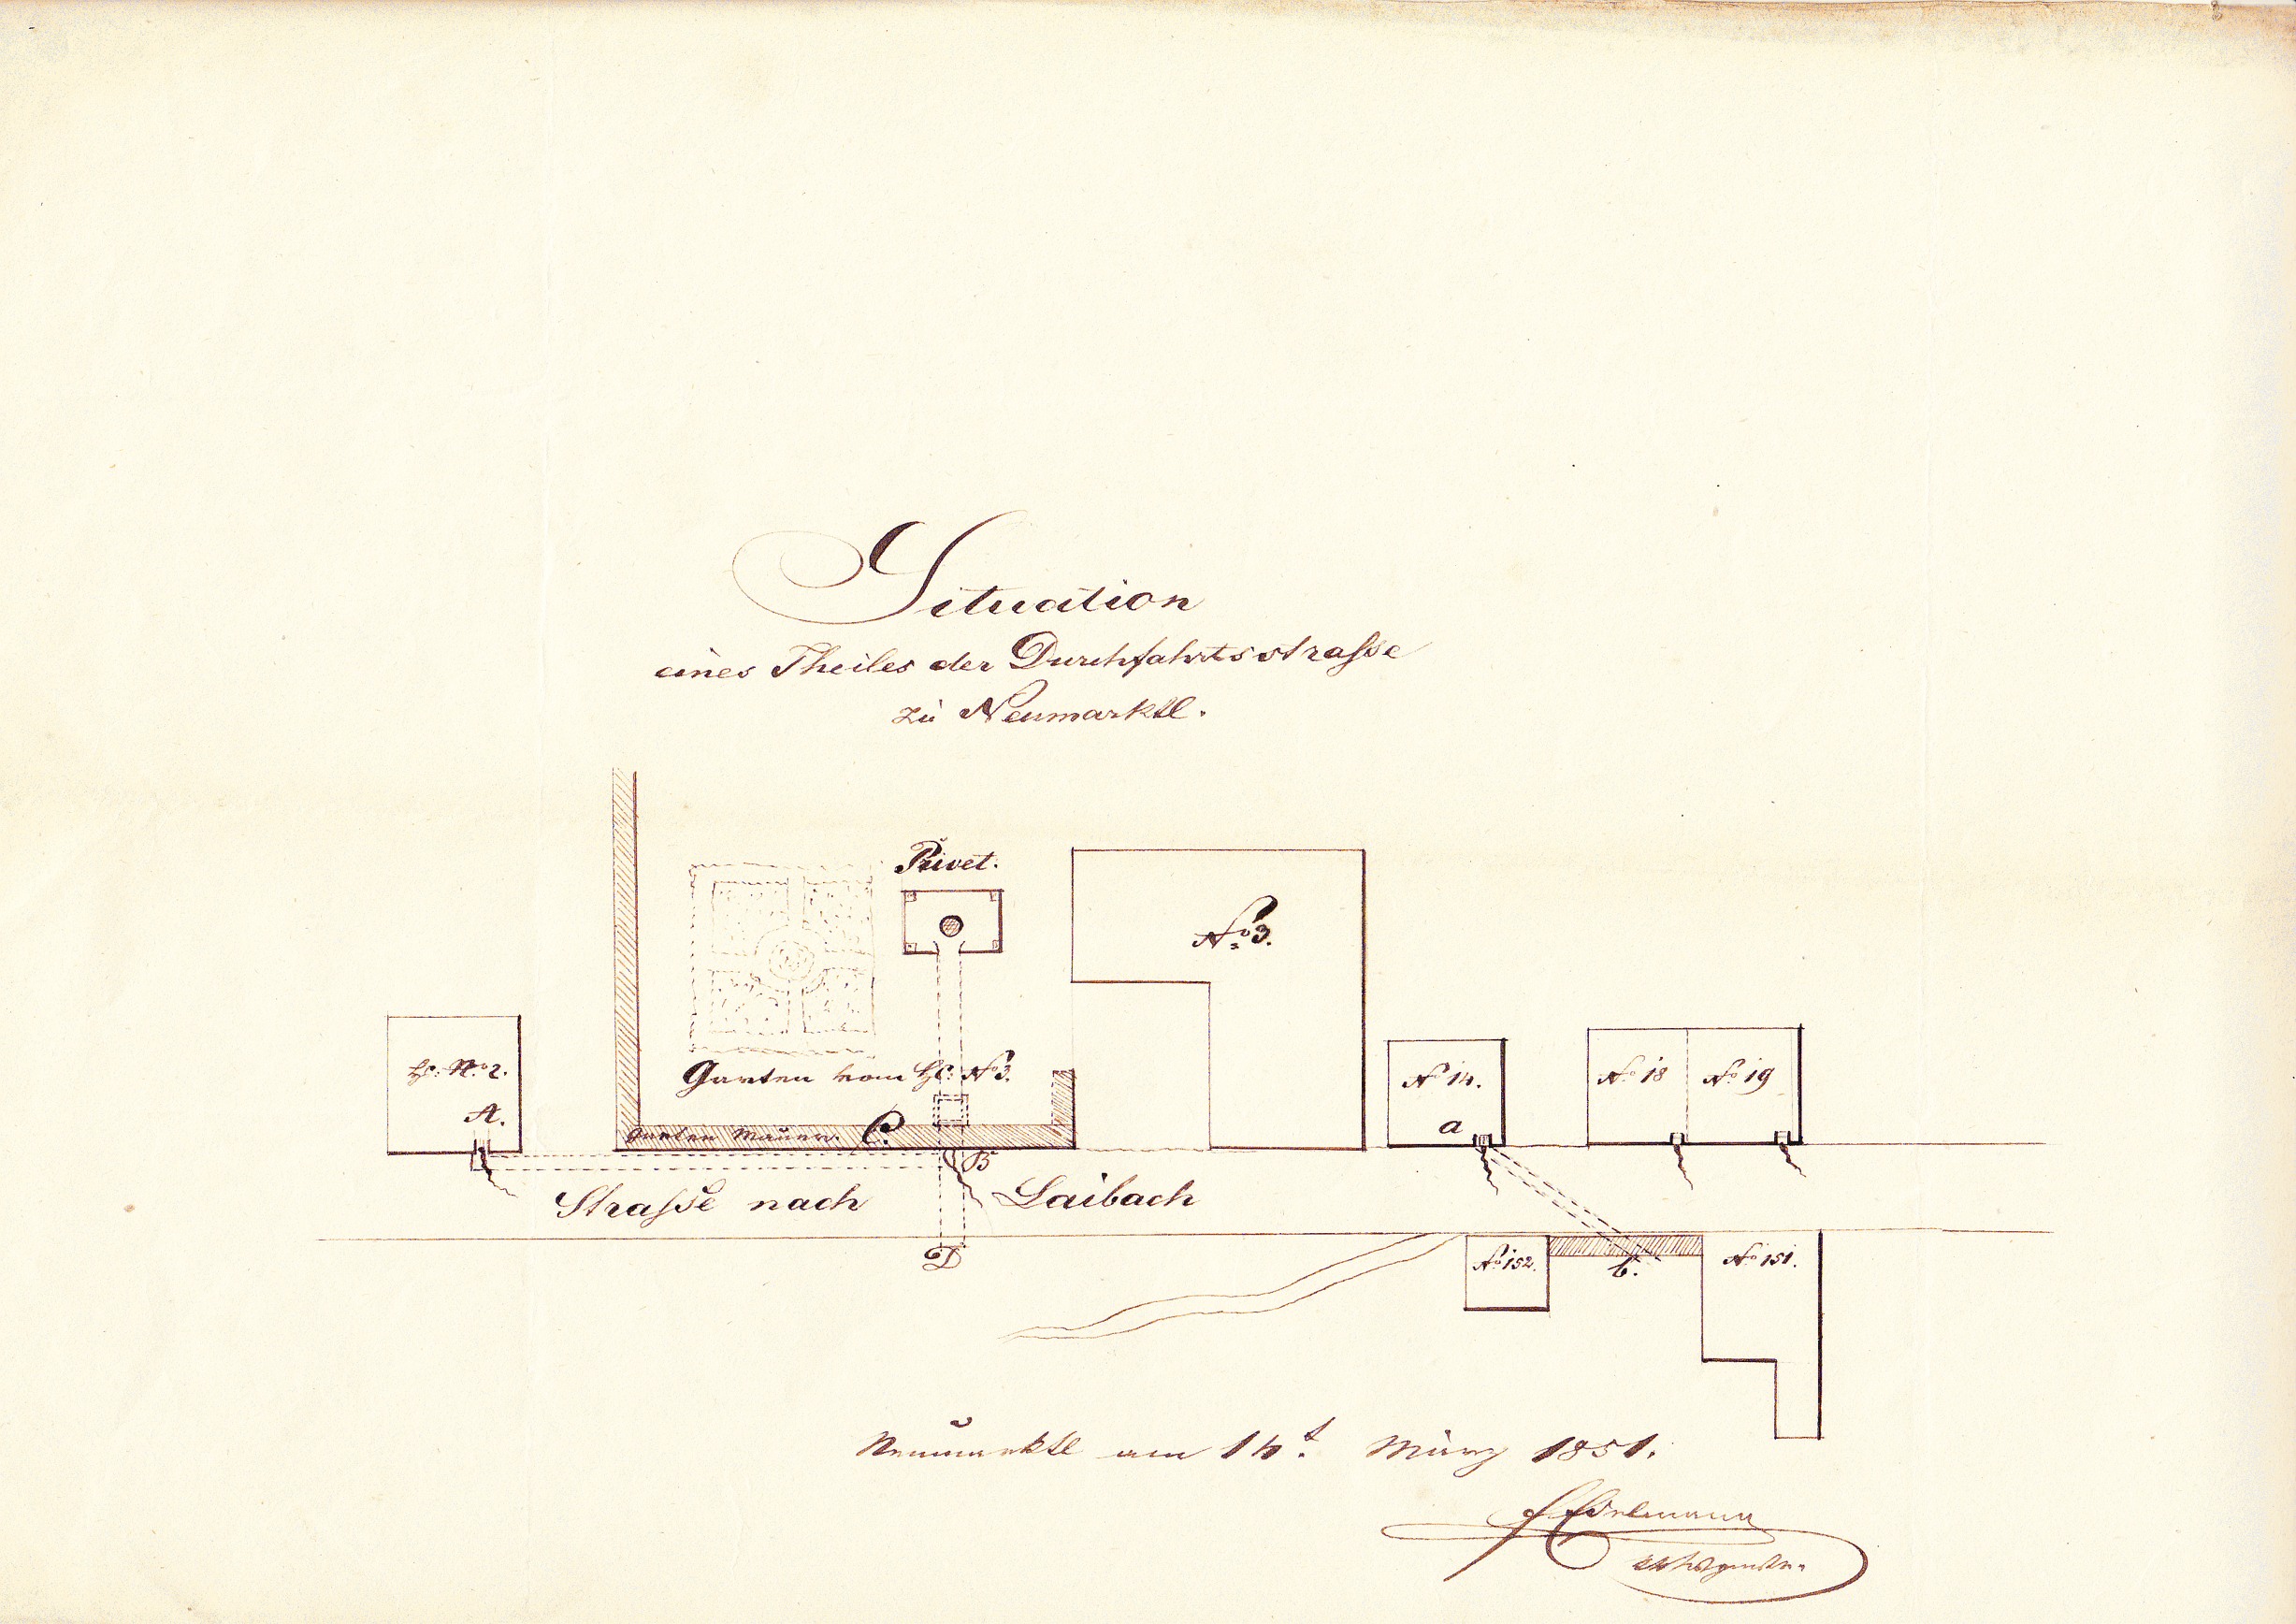 Situation
eines Theiles der Durchfahrtsstrasse
zu Neumarktl.
Privet.
No 3.
Hs: No 2.
A.
Garten vom Hs: No 3.
Garten Mauer. C.
No 14.
a
No 18
No 19
B
Strasse nach Laibach
D
No 152.
b.
No 151.
Neumarktl am 14t. März 1851.